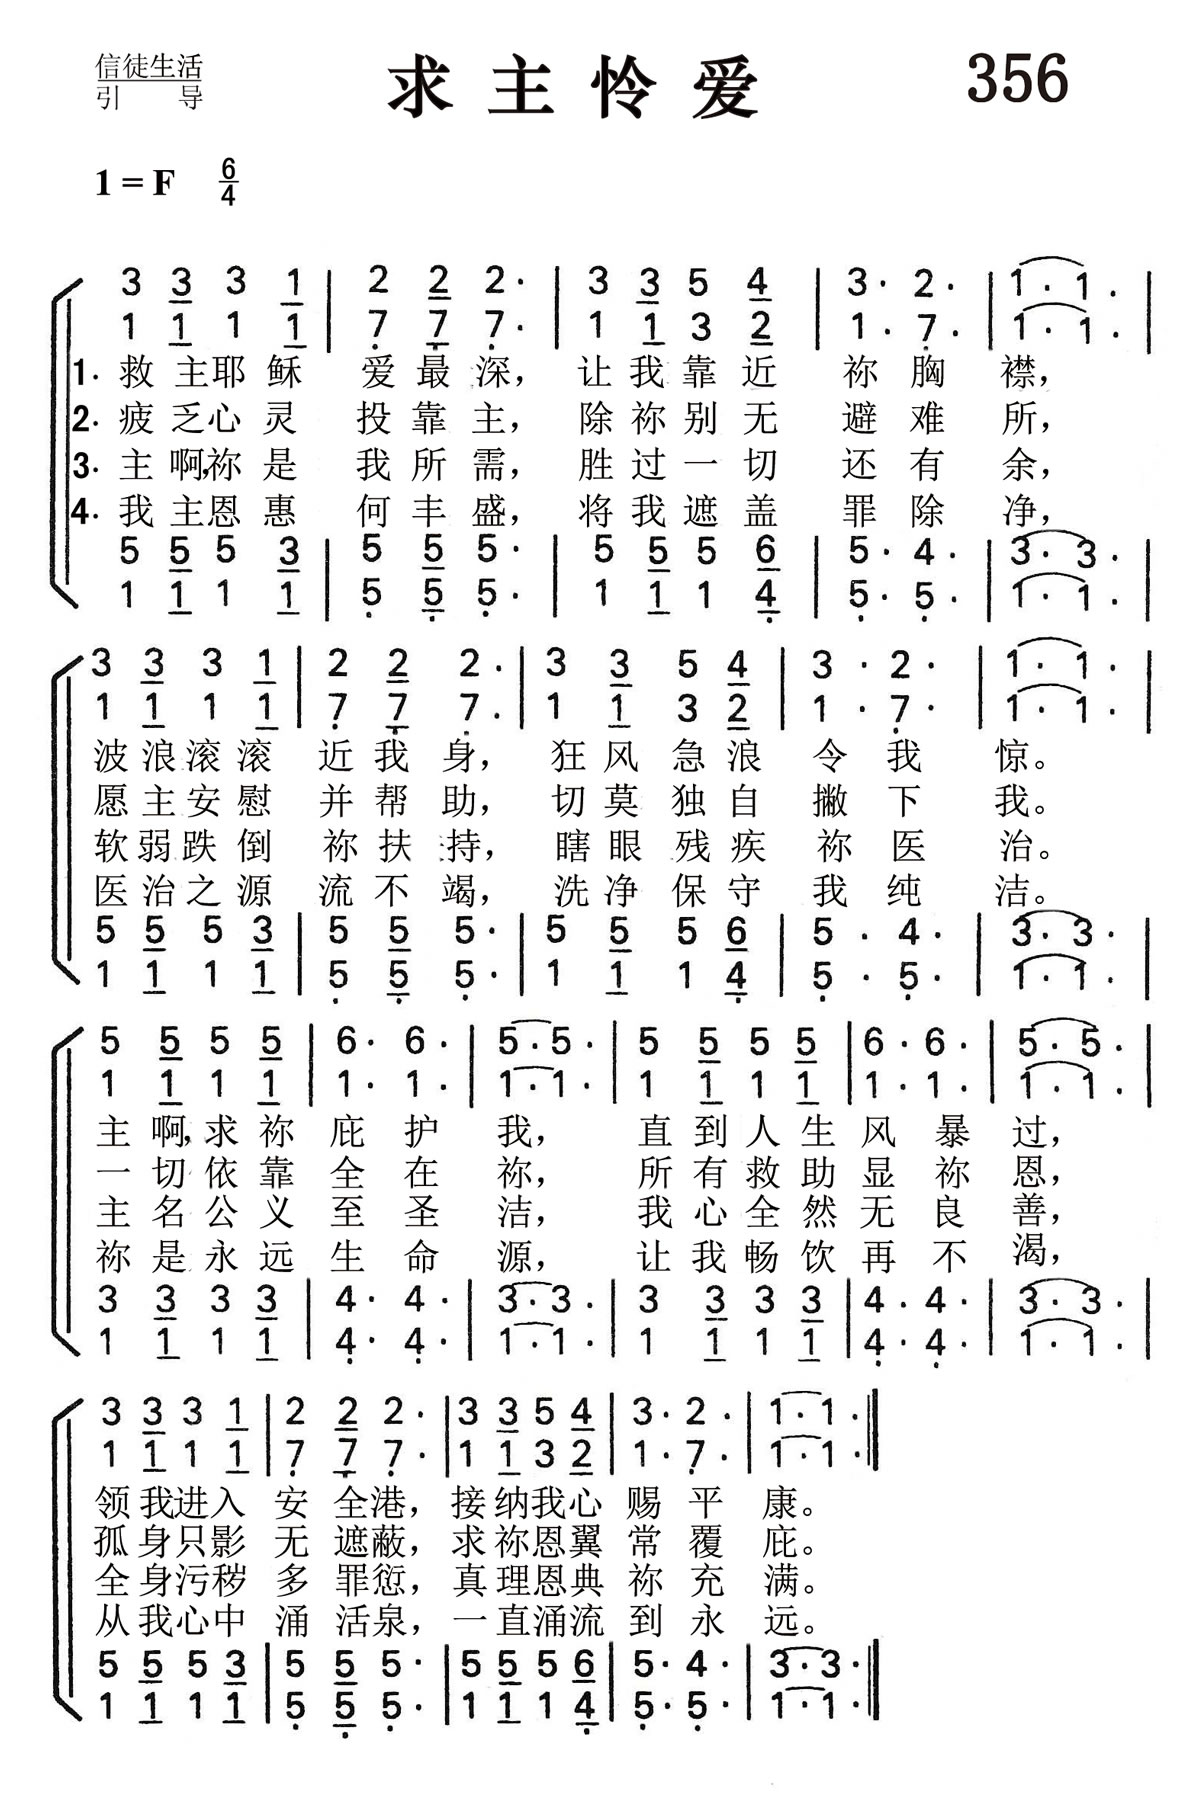 信徒生活
引导
求主怜爱
356
1=F 6/4
3 3 3 1 | 2 2 2· | 3 3 5 4 | 3· 2· | 1· 1· |
1 1 1 1 | 7 7 7· | 1 1 3 2 | 1· 7· | 1· 1· |
1. 救主耶稣 爱最深，让我靠近 祢胸襟，
2. 疲乏心灵 投靠主，除祢别无 避难所，
3. 主啊，祢是 我所需，胜过一切 还有余，
4. 我主恩惠 何丰盛，将我遮盖 罪除净，
5 5 5 3 | 5 5 5· | 5 5 5 6 | 5· 4· | 3· 3· |
1 1 1 1 | 5 5 5· | 1 1 1 4 | 5· 5· | 1· 1· |
3 3 3 1 | 2 2 2· | 3 3 5 4 | 3· 2· | 1· 1· |
1 1 1 1 | 7 7 7· | 1 1 3 2 | 1· 7· | 1· 1· |
波浪滚滚 近我身，狂风急浪 令我惊。
愿主安慰 并帮助，切莫独自 撇下我。
软弱跌倒 祢扶持，瞎眼残疾 祢医治。
医治之源 流不竭，洗净保守 我纯洁。
5 5 5 3 | 5 5 5· | 5 5 5 6 | 5· 4· | 3· 3· |
1 1 1 1 | 5 5 5· | 1 1 1 4 | 5· 5· | 1· 1· |
5 5 5 5 | 6· 6· | 5· 5· | 5 5 5 5 | 6· 6· | 5· 5· |
1 1 1 1 | 1· 1· | 1· 1· | 1 1 1 1 | 1· 1· | 1· 1· |
主啊，求祢 庇护我，直到人生 风暴过，
一切依靠 全在祢，所有救助 显祢恩，
主名公义 至圣洁，我心全然 无良善，
祢是永远 生命源，让我畅饮 再不渴，
3 3 3 3 | 4· 4· | 3· 3· | 3 3 3 3 | 4· 4· | 3· 3· |
1 1 1 1 | 4· 4· | 1· 1· | 1 1 1 1 | 4· 4· | 1· 1· |
3 3 3 1 | 2 2 2· | 3 3 5 4 | 3· 2· | 1· 1· :||
1 1 1 1 | 7 7 7· | 1 1 3 2 | 1· 7· | 1· 1·
领我进入 安全港，接纳我心 赐平康。
孤身只影 无遮蔽，求祢恩翼 常覆庇。
全身污秽 多罪愆，真理恩典 祢充满。
从我心中 涌活泉，一直涌流 到永远。
5 5 5 3 | 5 5 5· | 5 5 5 6 | 5· 4· | 3· 3· :||
1 1 1 1 | 5 5 5· | 1 1 1 4 | 5· 5· | 1· 1·